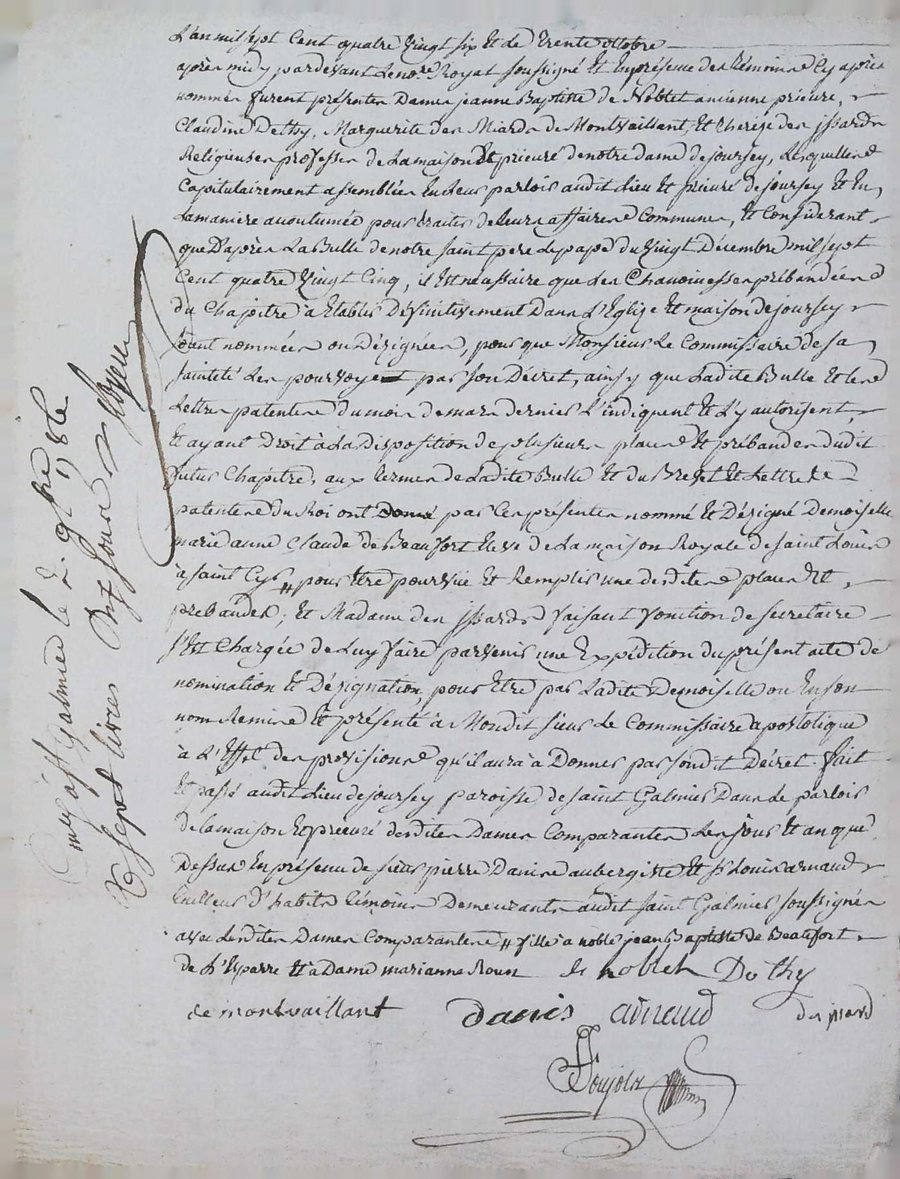 L'an mil sept Cent quatre Vingt six Et le Trente octobre
après midy pardevant Le nore Royal soussigné Et En présence des témoins Cy après
nommés furent présentes Dames jeanne Baptiste de Noblet ancienne prieure,
Claudine Dethy, Marguerite des Miards de Montvaillant, Et therèze des jssards
Religieuses professes de La maison Et prieuré de notre dame de joursey, Lesquelles
Capitulairement assemblées En Leur parloir audit Lieu Et prieuré de joursey Et En
La manière acoutumée pour traiter de Leurs affaires Communes, Et Considerant
que D'après La Bulle de notre saint pere Le pape du Vingt Décembre mil sept
Cent quatre Vingt Cinq, il Est nécessaire que Les Chanoinesses prébandées
du Chapitre à Etablir Définitivement Dans L'Eglize Et maison de joursey
soient nommées ou Désignées, pour que Monsieur Le Commissaire de sa
sainteté Les pourvoye par son Décret, ainsy que Ladite Bulle Et les
Lettres patentes du mois de mars dernier L'indiquent Et L'y autorisent,
Et ayant Droit à La disposition de plusieurs places Et prébandes dudit
futur Chapitre, aux termes de Ladite Bulle Et du Brevet Et Lettres
patentes du Roi ont donné par Ces présentes nommé Et Désigné Demoiselle
marie anne Claude de Beaufort Eleve de La maison Royale de saint Louis
à saint Cyr // pour Etre pourvüe Et Remplir une desdites places Et
prebandes; Et Madame des jssards faisant fonction de secretaire
s'Est Chargée de Luy faire parvenir une Expédition du présent acte de
nomination Et Désignation, pour Etre par Ladite Demoiselle ou En son
nom Remise Et présenté à Mondit sieur Le Commissaire apostolique
à L'Effet des provisions qu'il aura à Donner par sondit Décret. fait
Et passé audit Lieu de joursey paroisse de saint Galmier Dans Le parloir
de la maison Et prieuré desdites Dames Comparantes Les jour Et an que
Dessus En présence de sieur pierre Danis aubergiste Et sr Louis arnaud
tailleur d'habits témoins Demeurants audit saint Galmier soussignés
avec Lesdites Dames Comparantes // fille à noble jean Baptiste de Beaufort
de L'Esparre Et à Dame marianne Roux de noblet De thy
de montvaillant Danis arnaud des jssards
Poujols
Engé à st Galmier le 2. 9bre 1786
R sept livres dix sous